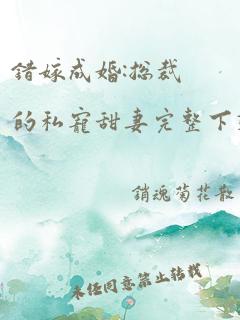 错嫁成婚:总裁
的私寵甜妻完整下
銷魂菊花散
未经同意禁止转载